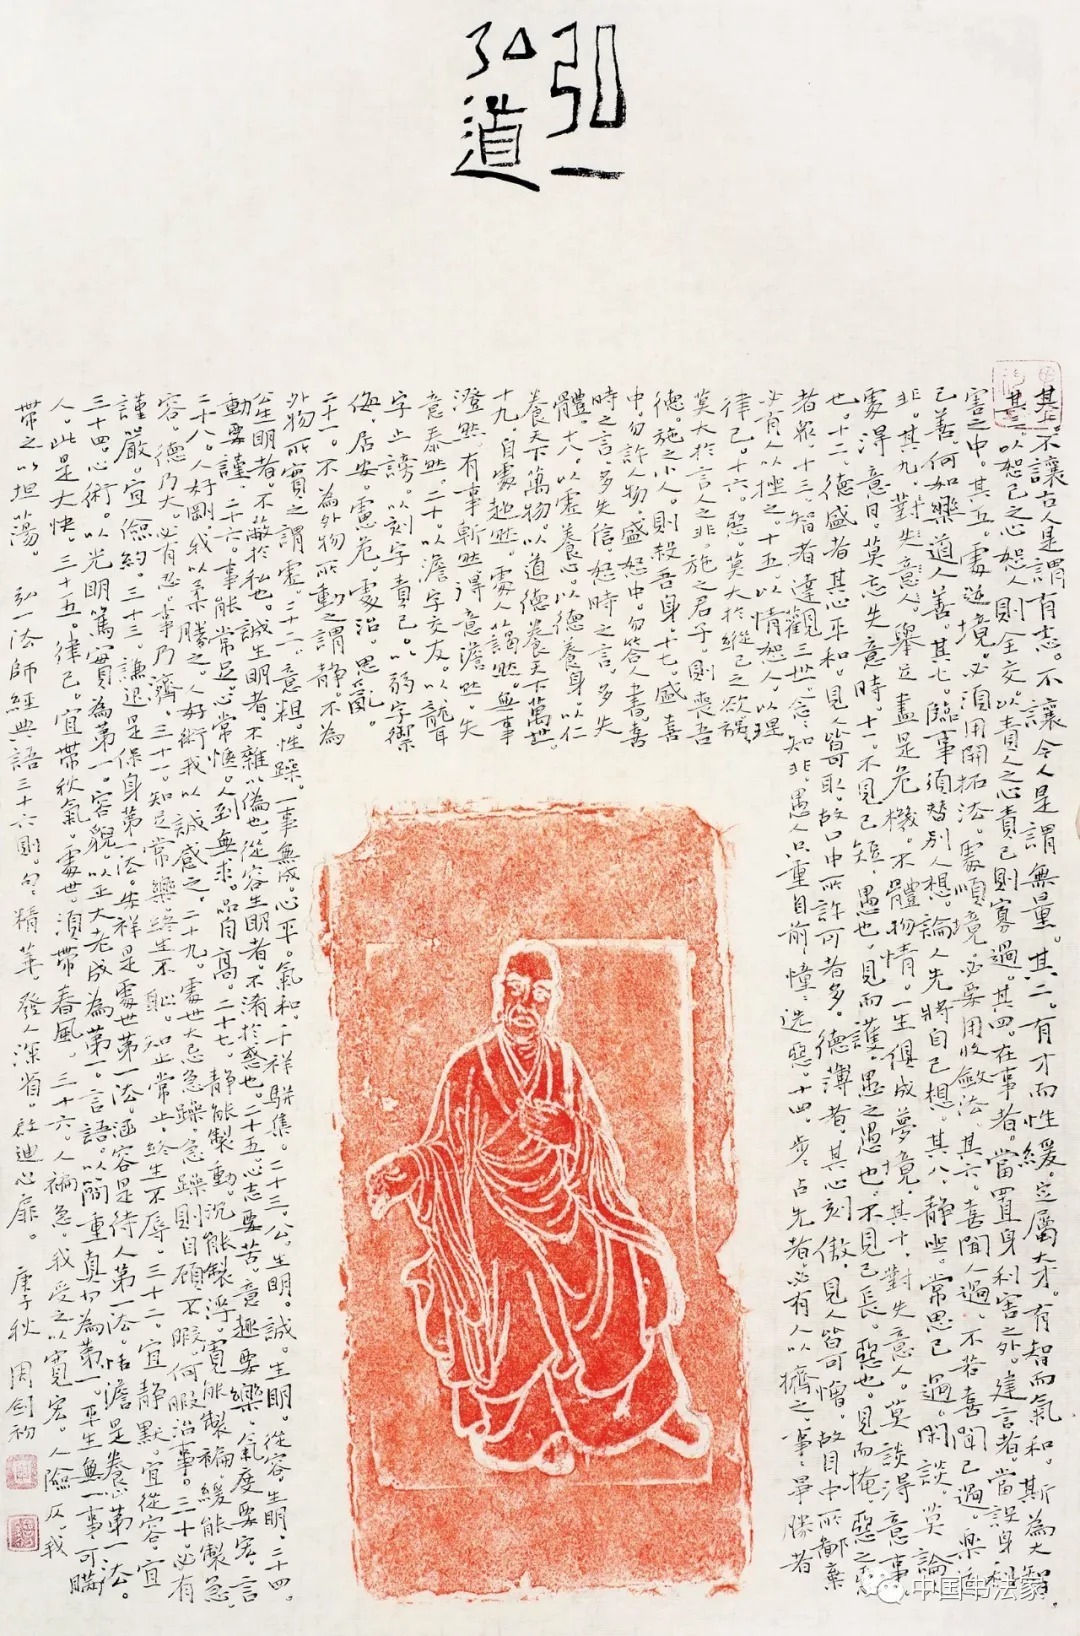 弘一
弘道
其一。不讓古人是謂有志。不讓今人是謂無量。其二。有才而性緩。定屬大才。有智而氣和。斯為大智。
其三。以恕己之心恕人則全交。以責人之心責己則寡過。其四。在事者。當置身利害之外。建言者。當設身利
害之中。其五。處逆境。必須用開拓法。處順境。必要用收斂法。其六。喜聞人過。不若喜聞己過。樂道
己善。何如樂道人善。其七。臨事須替別人想。論人先將自己想。其八。靜坐。常思己過。閑談。莫論人
非。其九。對失意人。莫談得意事。
處得意日。莫忘失意時。十一。不見己短。愚也。見而護。愚之愚也。不見己長。惡也。見而掩。惡之惡
也。十二。德盛者其心平和。見人皆可取。故口中所許可者多。德薄者。其心刻傲。見人皆可憎。故目中所鄙棄
者眾。十三。智者達觀三世。念念知非。愚人只重目前。憧憧造惡。十四。步步占先者。必有人以擠之。事事爭勝者
必有人以挫之。十五。以情恕人。以理
律己。十六。惡。莫大於縱己之欲。禍
莫大於言人之非。施之君子。則喪吾
德。施之小人。則殺吾身。十七。盛喜
中。勿許人物。盛怒中。勿答人書。喜
時之言。多失信。怒時之言。多失
體。十八。以虛養心。以德養身。以仁
養天下萬物。以道德養天下萬世。
十九。自處超然。處人藹然。無事
澄然。有事斬然。得意澹然。失
意泰然。二十。以澹字交友。以聾
字止謗。以刻字責己。以弱字禦
侮。居安。慮危。處治。思亂。
二十一。不為外物所動之謂靜。不為
外物所實之謂虛。二十二。意粗。性躁。一事無成。心平。氣和。千祥駢集。二十三。公。生明。誠。生明。從容。生明。二十四。
公生明者。不蔽於私也。誠生明者。不雜以偽也。從容生明者。不淆於惑也。二十五。心志要苦。意趣要樂。氣度要宏。言
動要謹。二十六。事能常足。心常愜。人到無求。品自高。二十七。靜能製動。沉能製浮。寬能製褊。緩能製急。
二十八。人好剛。我以柔勝之。人好術。我以誠感之。二十九。處世大忌急躁。急躁則自顧不暇。何暇治事。三十。必有
容。德乃大。必有忍。事乃濟。三十一。知足常樂。終生不恥。知止常止。終生不辱。三十二。宜靜默。宜從容。宜
謹嚴。宜儉約。三十三。謙退是保身第一法。安祥是處世第一法。涵容是待人第一法。恬澹是養心第一法。
三十四。心術。以光明篤實為第一。容貌。以正大老成為第一。言語。以簡重真切為第一。平生無一事可瞞
人。此是大快。三十五。律己。宜帶秋氣。處世。須帶春風。三十六。人褊急。我受之以寬宏。人險仄。我
帶之以坦蕩。弘一法師經典語三十六則。句句精華。發人深省。啟迪心扉。庚子秋 周劍初
中国书法家